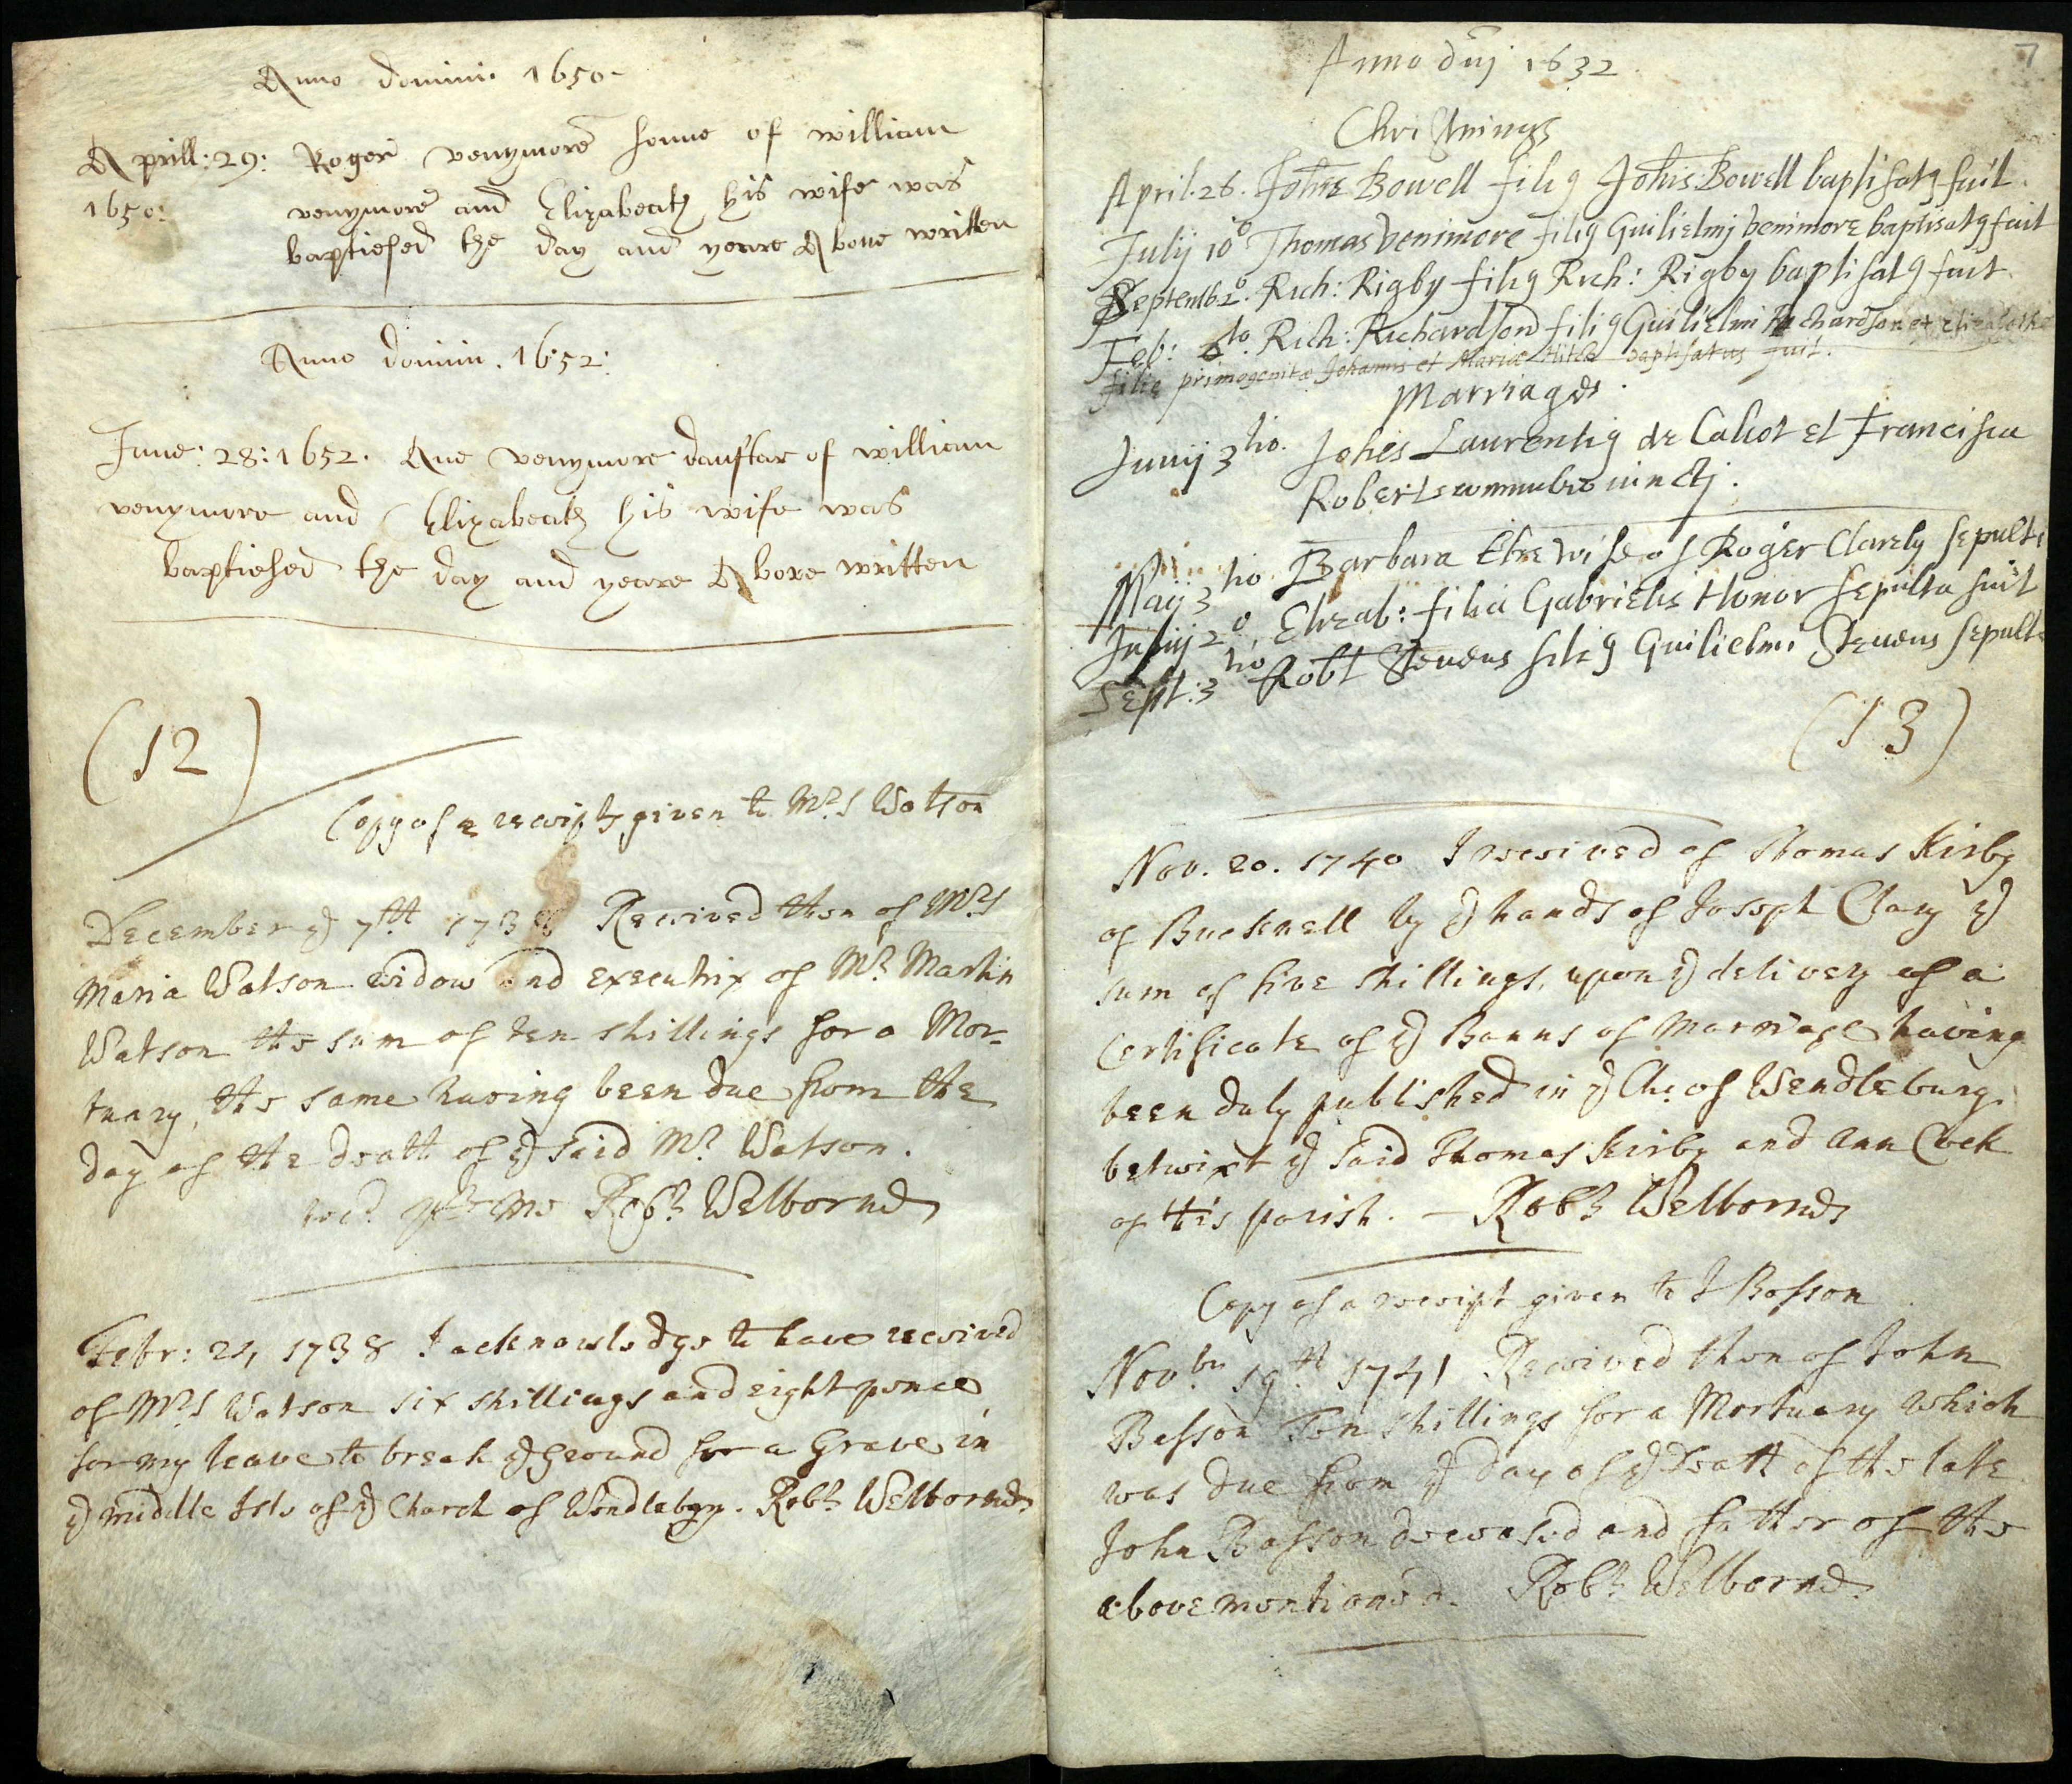 Anno domini 1650
Aprill: 29: Roger venymore sonne of william
1650: venymore and Elizabeath his wife was
baptiesed the day and yeare Above written
Anno domini. 1652:
June: 28: 1652. Ane venymore dauftar of william
venymore and Elizabeath his wife was
baptiesed the day and yeare Above written
(12)
Copy of a receipt given to Mrs Watson
December ye 7th 1738 Received then of Mrs
Maria Watson widow and executrix of Mr Martin
Watson the sum of ten shillings for a Mor-
tuary, the same having been due from the
day of the death of ye said Mr Watson.
recd by me Robt Welbornd
Febr: 21, 1738 I acknowledge to have received
of Mrs Watson six shillings and eight pence
for my leave to break ye ground for a Grave in
ye middle Isle of ye Church of Wendlebury. Robt Welbornd
7
Anno dni 1632
Christnings
April. 26. Johne Bowell filig Johis Bowell baptisatg fuit.
Julij 10o Thomas Venimore filig Guilielmj Venimore baptisatg fuit
Septemb 2o. Rich: Rigby filig Rich: Rigby baptisatg fuit.
Feb: 6to. Rich: Richardson filig Guilielmi Richardson et Elizabethæ
filiæ primogenitæ Johannis et Mariæ baptisatus fuit.
Marriages
Junij 3tio. Johes Laurentig de Calcot et Francisca
Roberts connubio iunctj.
Maij 3tio Barbara wife of Roger Clarely sepulta
Julij 2o, Elizab: filia Gabrielis Honor sepulta fuit
Sept: 3tio Robt Stevens filig Guilielmi Stevens sepult
(13)
Nov. 20. 1740 I received of Thomas Kirby
of Bucknell by ye hands of Joseph Clary ye
sum of five shillings, upon ye delivery of a
Certificate of ye Banns of Marriage having
been duly published in ye Ch: of Wendlebury
betwixt ye said Thomas Kirby and Ann Cock
of this parish. — Robt Welbornd
Copy of a receipt given to J Basson
Novbr 19th 1741 Received then of John
Basson Ten shillings for a Mortuary which
was due from ye day of ye Death of the late
John Basson deceased and father of the
abovementioned. Robt Welbornd